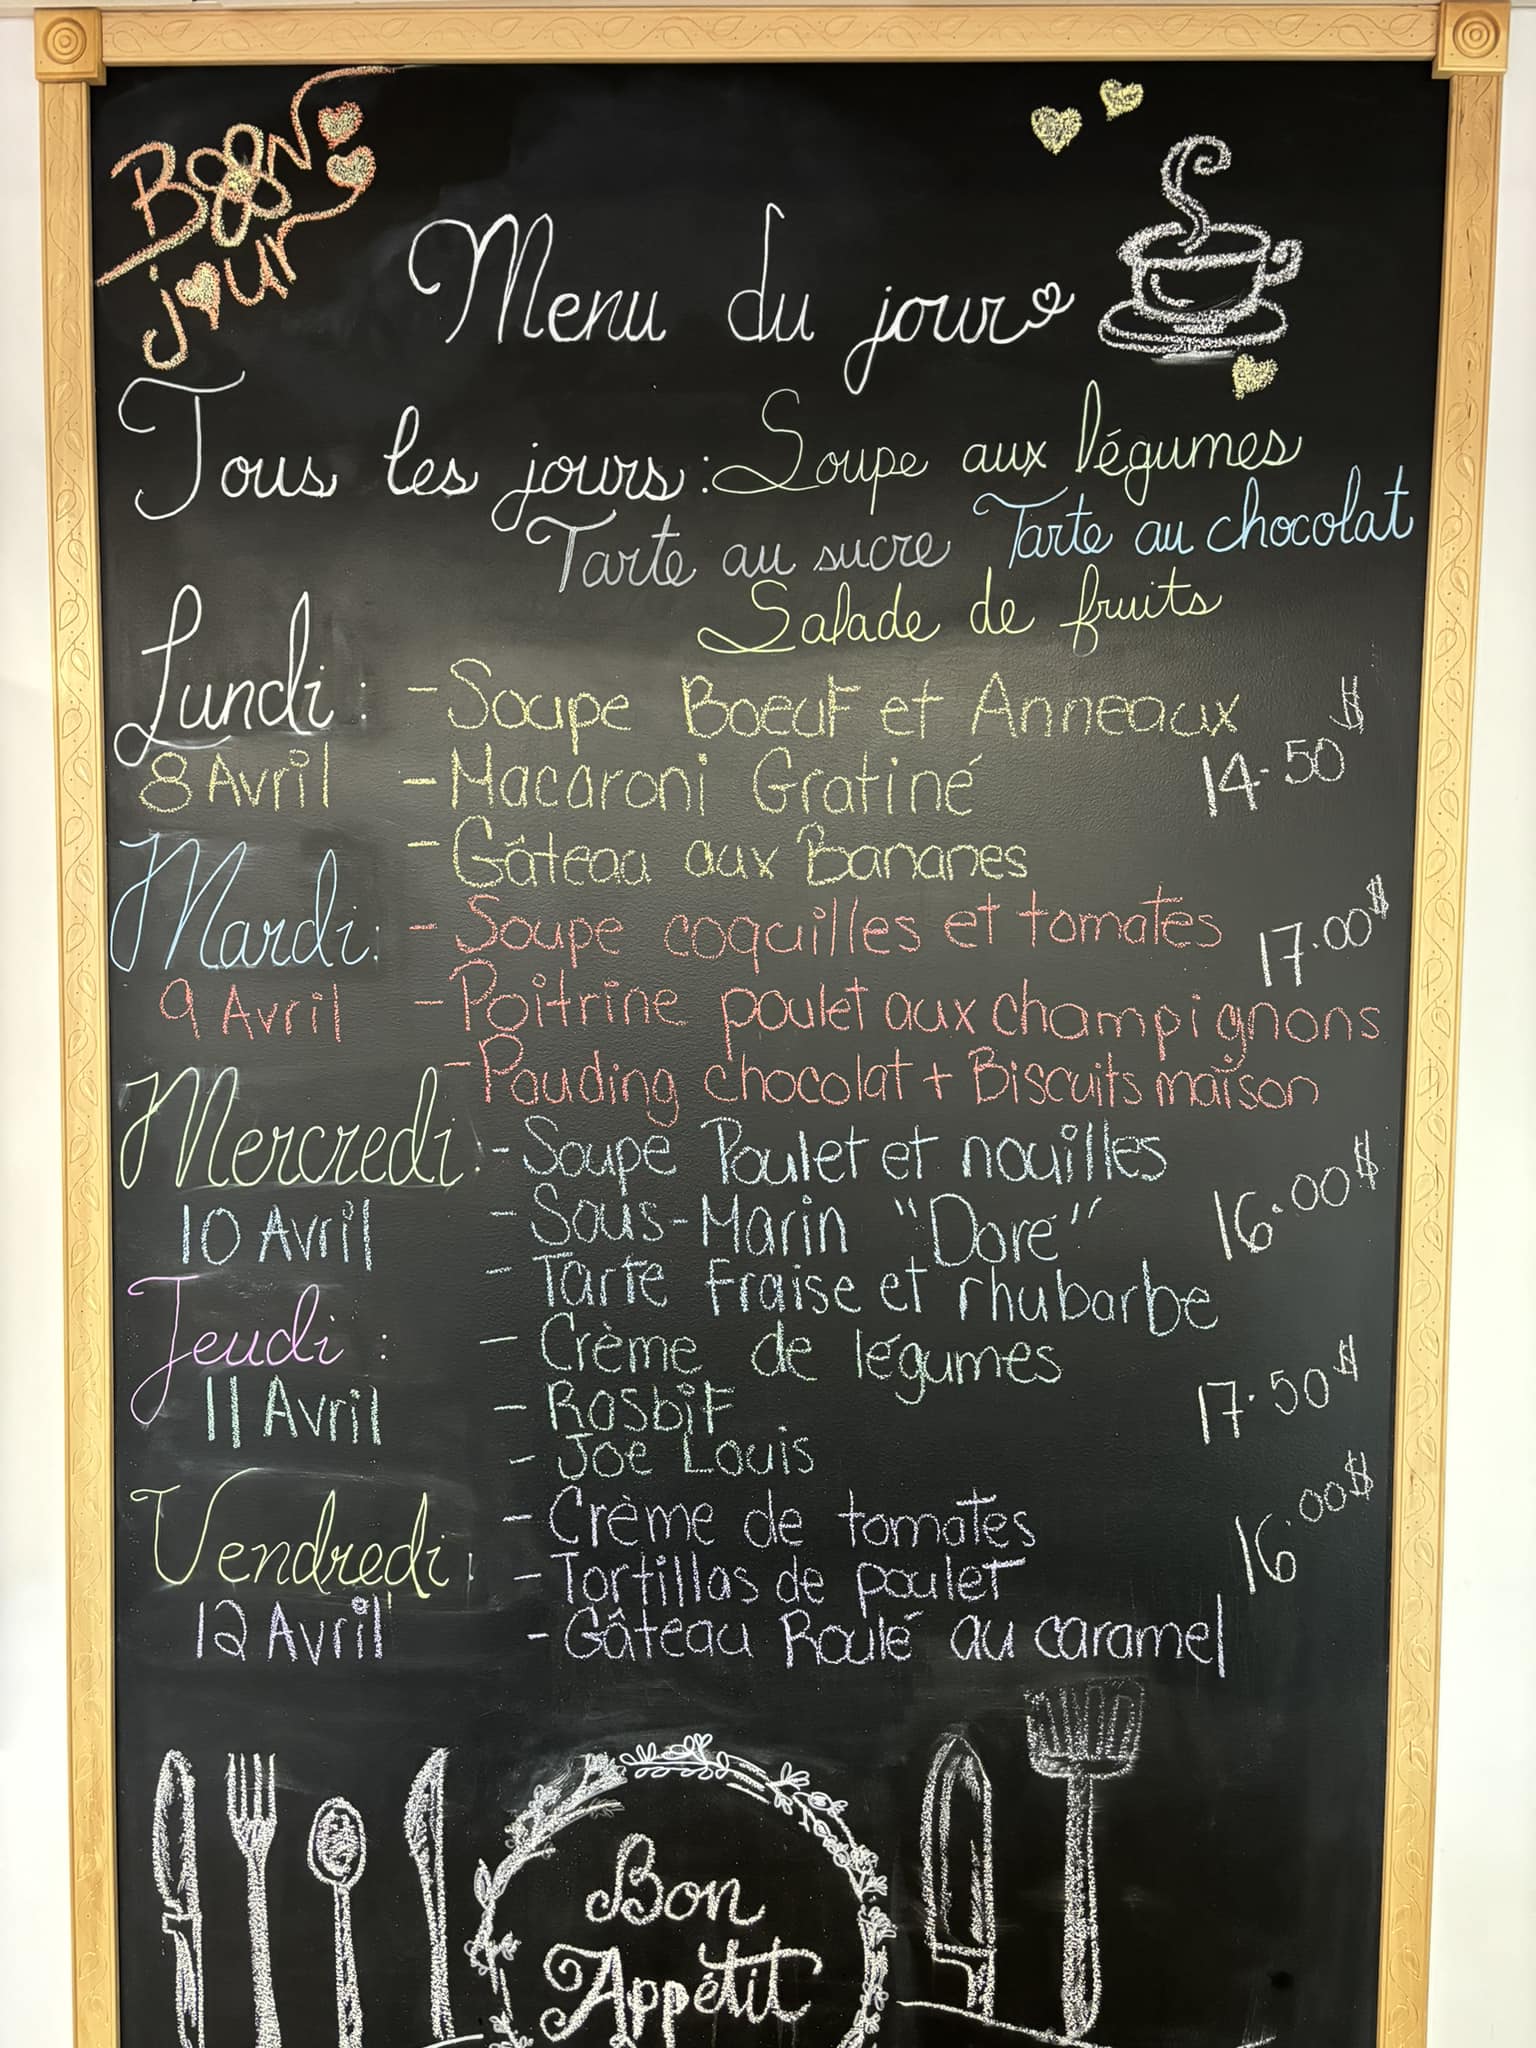 BON
jour
Menu du jour
Tous les jours: Soupe aux légumes
Tarte au sucre Tarte au chocolat
Salade de fruits
Lundi: - Soupe Boeuf et Anneaux
8 Avril - Macaroni Gratiné 14.50$
- Gâteau aux Bananes
Mardi: - Soupe coquilles et tomates 17.00$
9 Avril - Poitrine poulet aux champignons
- Pouding chocolat + Biscuits maison
Mercredi: - Soupe Poulet et nouilles
10 Avril - Sous-Marin "Doré" 16.00$
- Tarte fraise et rhubarbe
Jeudi: - Crème de légumes
11 Avril - Rosbif 17.50$
- Joe Louis
Vendredi: - Crème de tomates 16.00$
- Tortillas de poulet
12 Avril - Gâteau Roulé au caramel
Bon
Appétit